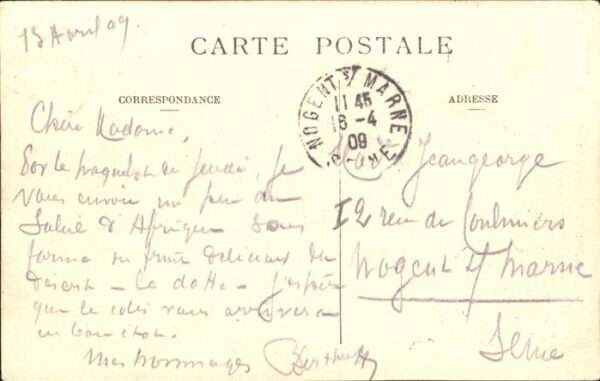 13 Avril 09
CARTE POSTALE
CORRESPONDANCE
ADRESSE
NOGENT S/ MARNE
11 45
16 -4
09
SEINE
Chère Madame,
Par le paquebot de jeudi, je
vous envoie un peu du
Soleil d'Afrique sous
forme du fruit délicieux du
désert - la datte - j'espère
que le colis vous arrivera
en bon état.
Mes hommages
Jeangeorge
12 rue de Coulmiers
Nogent s/ Marne
Seine